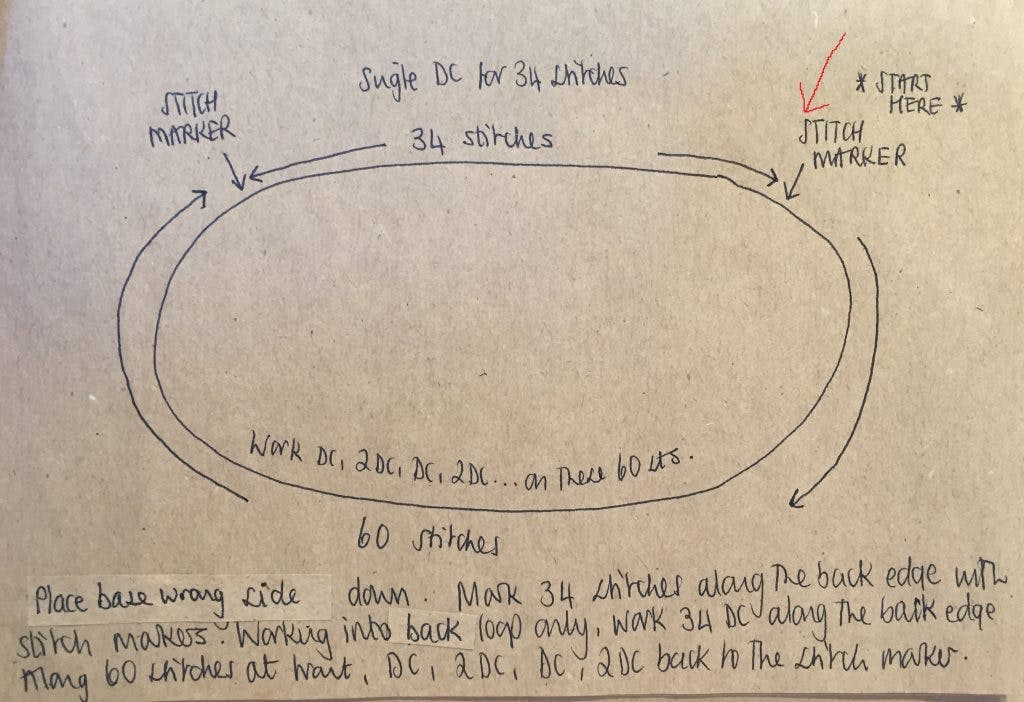 Single DC for 34 stitches
STITCH
MARKER
34 stitches
* START
HERE *
STITCH
MARKER
Work DC, 2DC, DC, 2DC... on these 60 sts.
60 stitches
Place base wrong side down. Mark 34 stitches along the back edge with
stitch makers. Working into back loop only, work 34 DC along the back edge
60 stitches at front, DC, 2DC, DC, 2DC back to the stitch marker.